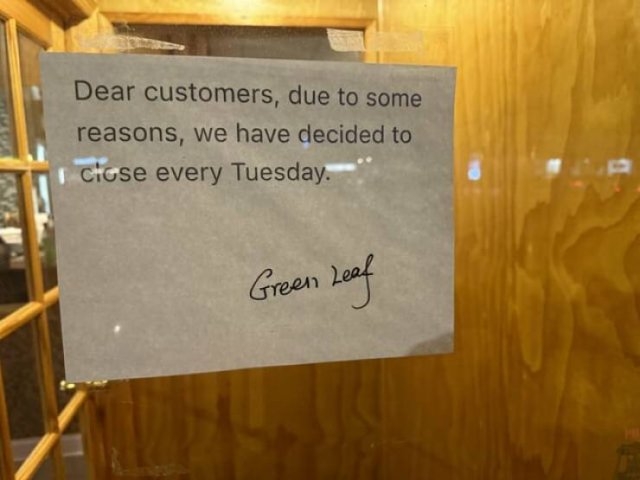 Dear customers, due to some
reasons, we have decided to
close every Tuesday.
Green Leaf